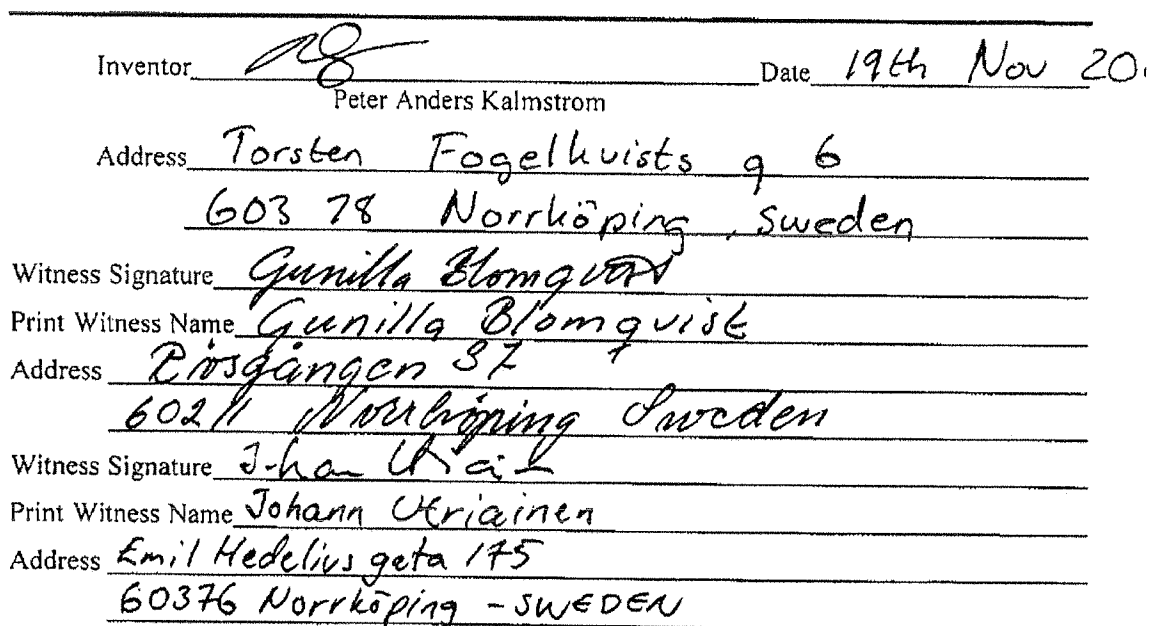 Inventor Date 19th Nov 20
Peter Anders Kalmstrom
Address Torsten Fogelkvists g 6
603 78 Norrköping, Sweden
Witness Signature Gunilla Blomqvist
Print Witness Name Gunilla Blomqvist
Address 37
602 11 Norrköping Sweden
Witness Signature Johan
Print Witness Name Johann Utriainen
Address Emil Hedelius gata 175
60376 Norrköping - SWEDEN